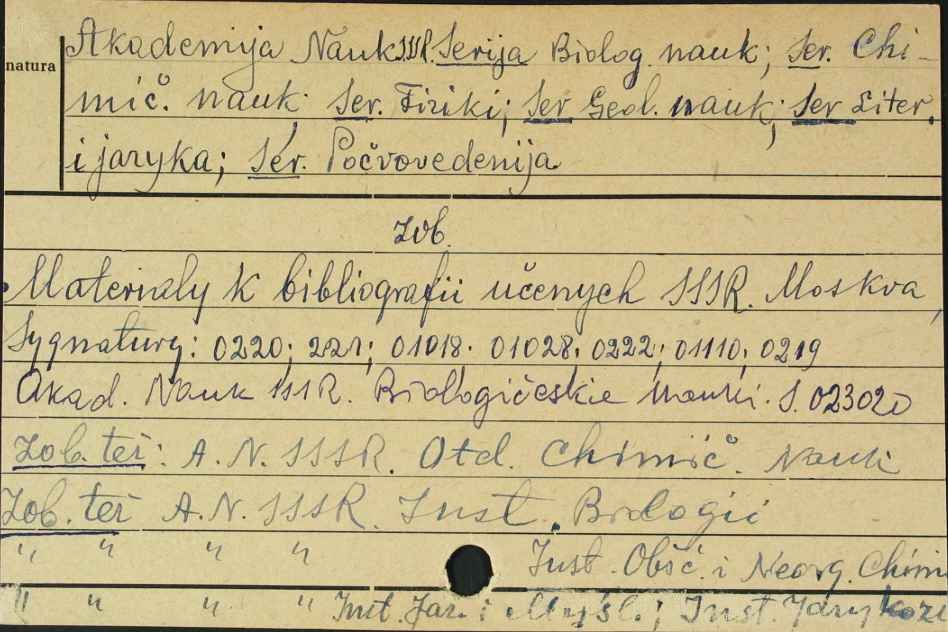 Akademija Nauk SSSR. Serija Biolog. nauk; Ser. Chi-
natura
mič. nauk; Ser. Fiziki; Ser Geol. nauk; Ser Liter.
i jazyka; Ser. Počvovedenija
Zob.
Materiały k bibliografii učenych SSSR. Moskva,
Sygnatury: 0220; 221; 01018; 01028; 0222; 01110; 0219
Akad. Nauk SSSR. Biologičeskie Nauki. S. 023020
Zob. też: A. N. SSSR. Otd. Chimič. Nauk
Zob. też A. N. SSSR. Inst. Biologii
" " " " Inst. Obšč. i Neorg. Chim
" " " " Inst. Jaz. i Myśl.; Inst. Jazykozn